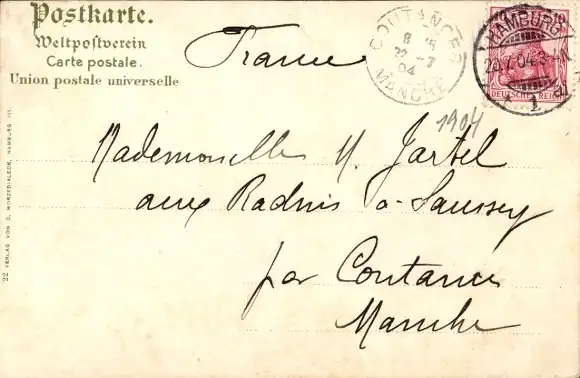 Postkarte.
Weltpostverein
Carte postale.
Union postale universelle
France
COUTANCES
8
22 - 7
04
MANCHE
HAMBURG
20.7.04.3-4N
1
10
DEUTSCHES REICH
1904
Mademoiselle M. Jartel
aux Radnis à Saussey
par Coutances
Manche
22 VERLAG VON C. WORZEDIALECK, HAMBURG VII.